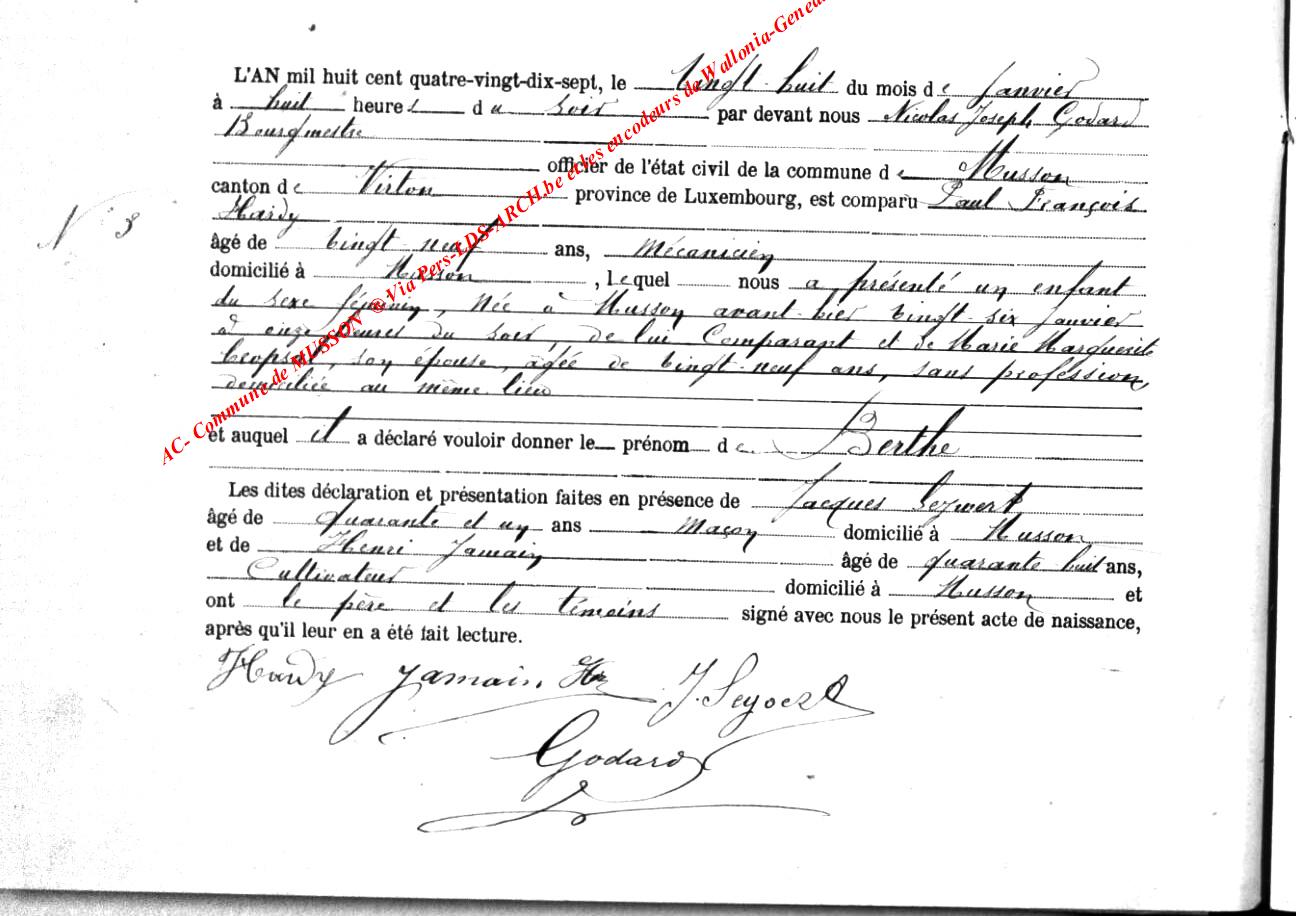 L'AN mil huit cent quatre-vingt-dix-sept, le vingt-huit du mois de Janvier
à huit heures du soir par devant nous Nicolas Joseph Godard
Bourgmestre
officier de l'état civil de la commune de Musson
canton de Virton province de Luxembourg, est comparu Paul François
Hardy
N° 3
âgé de vingt-neuf ans, Mécanicien
domicilié à Musson, lequel nous a présenté un enfant
du sexe féminin, née à Musson avant-hier vingt-six Janvier
à onze heures du soir, de lui Comparant et de Marie Marguerite
son épouse, agée de vingt-neuf ans, sans profession,
domiciliée au même lieu
et auquel il a déclaré vouloir donner le prénom de Berthe
Les dites déclaration et présentation faites en présence de Jacques
âgé de quarante et un ans maçon domicilié à Musson
et de Henri Jamain âgé de quarante huit ans,
Cultivateur domicilié à Musson et
ont le père et les témoins signé avec nous le présent acte de naissance,
après qu'il leur en a été fait lecture.
Hardy Jamain. Hri J.
Godard
AC- Commune de MUSSON © Via Pers-LDS-ARCH.be et les encodeurs de Wallonia-Genea